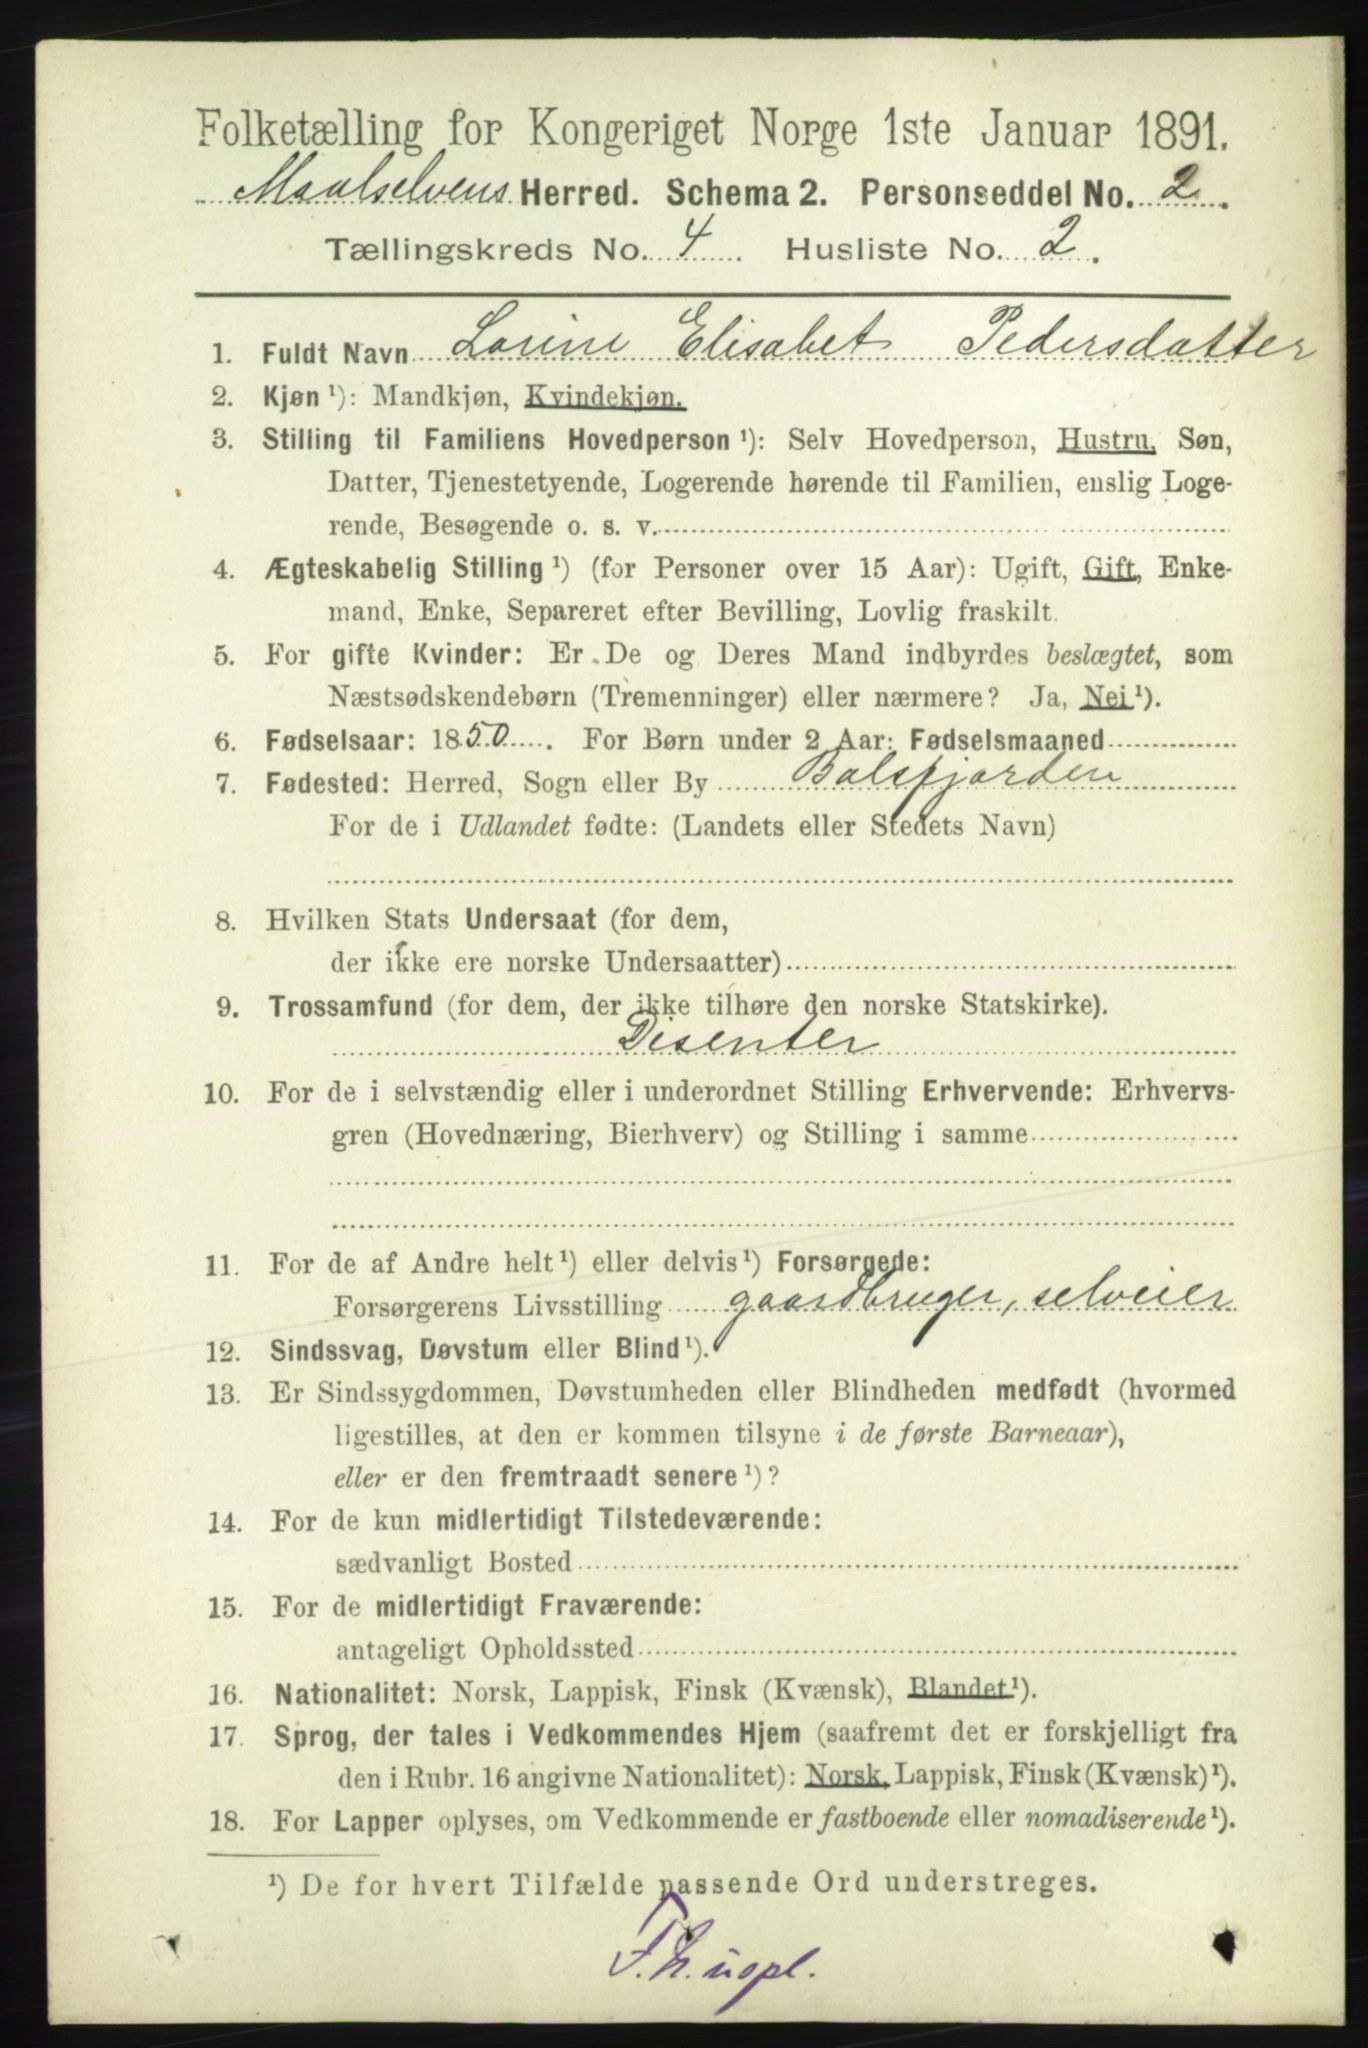 Folketælling for Kongeriget Norge 1ste Januar 1891.
Maalselvens Herred. Schema 2. Personseddel No. 2.
Tællingskreds No. 4 Husliste No. 2.
1. Fuldt Navn Lorine Elisabet Pedersdatter
2. Kjøn ¹): Mandkjøn, Kvindekjøn.
3. Stilling til Familiens Hovedperson ¹): Selv Hovedperson, Hustru, Søn,
Datter, Tjenestetyende, Logerende hørende til Familien, enslig Loge-
rende, Besøgende o. s. v.
4. Ægteskabelig Stilling ¹) (for Personer over 15 Aar): Ugift, Gift, Enke-
mand, Enke, Separeret efter Bevilling, Lovlig fraskilt.
5. For gifte Kvinder: Er De og Deres Mand indbyrdes beslægtet, som
Næstsødskendebørn (Tremenninger) eller nærmere? Ja, Nei ¹).
6. Fødselsaar: 1850. For Børn under 2 Aar: Fødselsmaaned
7. Fødested: Herred, Sogn eller By Balsfjorden
For de i Udlandet fødte: (Landets eller Stedets Navn)
8. Hvilken Stats Undersaat (for dem,
der ikke ere norske Undersaatter)
9. Trossamfund (for dem, der ikke tilhøre den norske Statskirke).
Disenter
10. For de i selvstændig eller i underordnet Stilling Erhvervende: Erhvervs-
gren (Hovednæring, Bierhverv) og Stilling i samme
11. For de af Andre helt ¹) eller delvis ¹) Forsørgede:
Forsørgerens Livsstilling gaardbruger, selveier
12. Sindssvag, Døvstum eller Blind ¹).
13. Er Sindssygdommen, Døvstumheden eller Blindheden medfødt (hvormed
ligestilles, at den er kommen tilsyne i de første Barneaar),
eller er den fremtraadt senere ¹)?
14. For de kun midlertidigt Tilstedeværende:
sædvanligt Bosted
15. For de midlertidigt Fraværende:
antageligt Opholdssted
16. Nationalitet: Norsk, Lappisk, Finsk (Kvænsk), Blandet ¹).
17. Sprog, der tales i Vedkommendes Hjem (saafremt det er forskjelligt fra
den i Rubr. 16 angivne Nationalitet): Norsk, Lappisk, Finsk (Kvænsk) ¹).
18. For Lapper oplyses, om Vedkommende er fastboende eller nomadiserende ¹).
¹) De for hvert Tilfælde passende Ord understreges.
F. h. uopl.